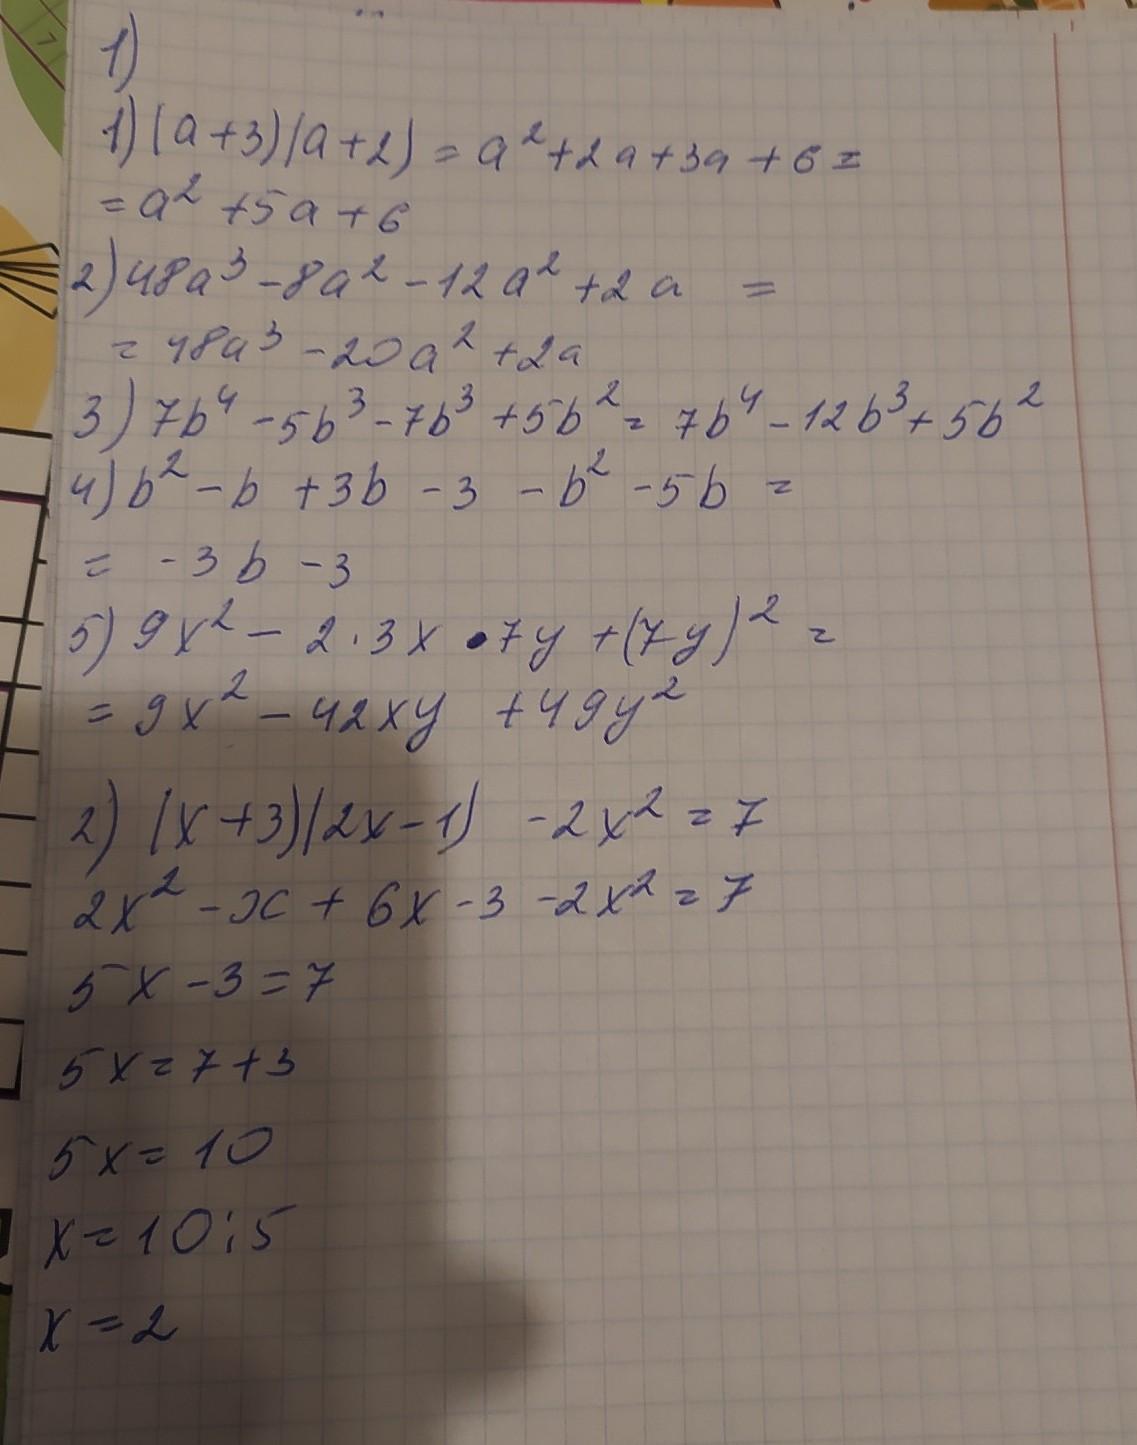 1)
1) (a+3)(a+2) = a² + 2a + 3a + 6 =
= a² + 5a + 6
2) 48a³ - 8a² - 12a² + 2a =
= 48a³ - 20a² + 2a
3) 7b⁴ - 5b³ - 7b³ + 5b² = 7b⁴ - 12b³ + 5b²
4) b² - b + 3b - 3 - b² - 5b =
= -3b - 3
5) 9x² - 2·3x·7y + (7y)² =
= 9x² - 42xy + 49y²
2) (x+3)(2x-1) - 2x² = 7
2x² - x + 6x - 3 - 2x² = 7
5x - 3 = 7
5x = 7 + 3
5x = 10
x = 10:5
x = 2